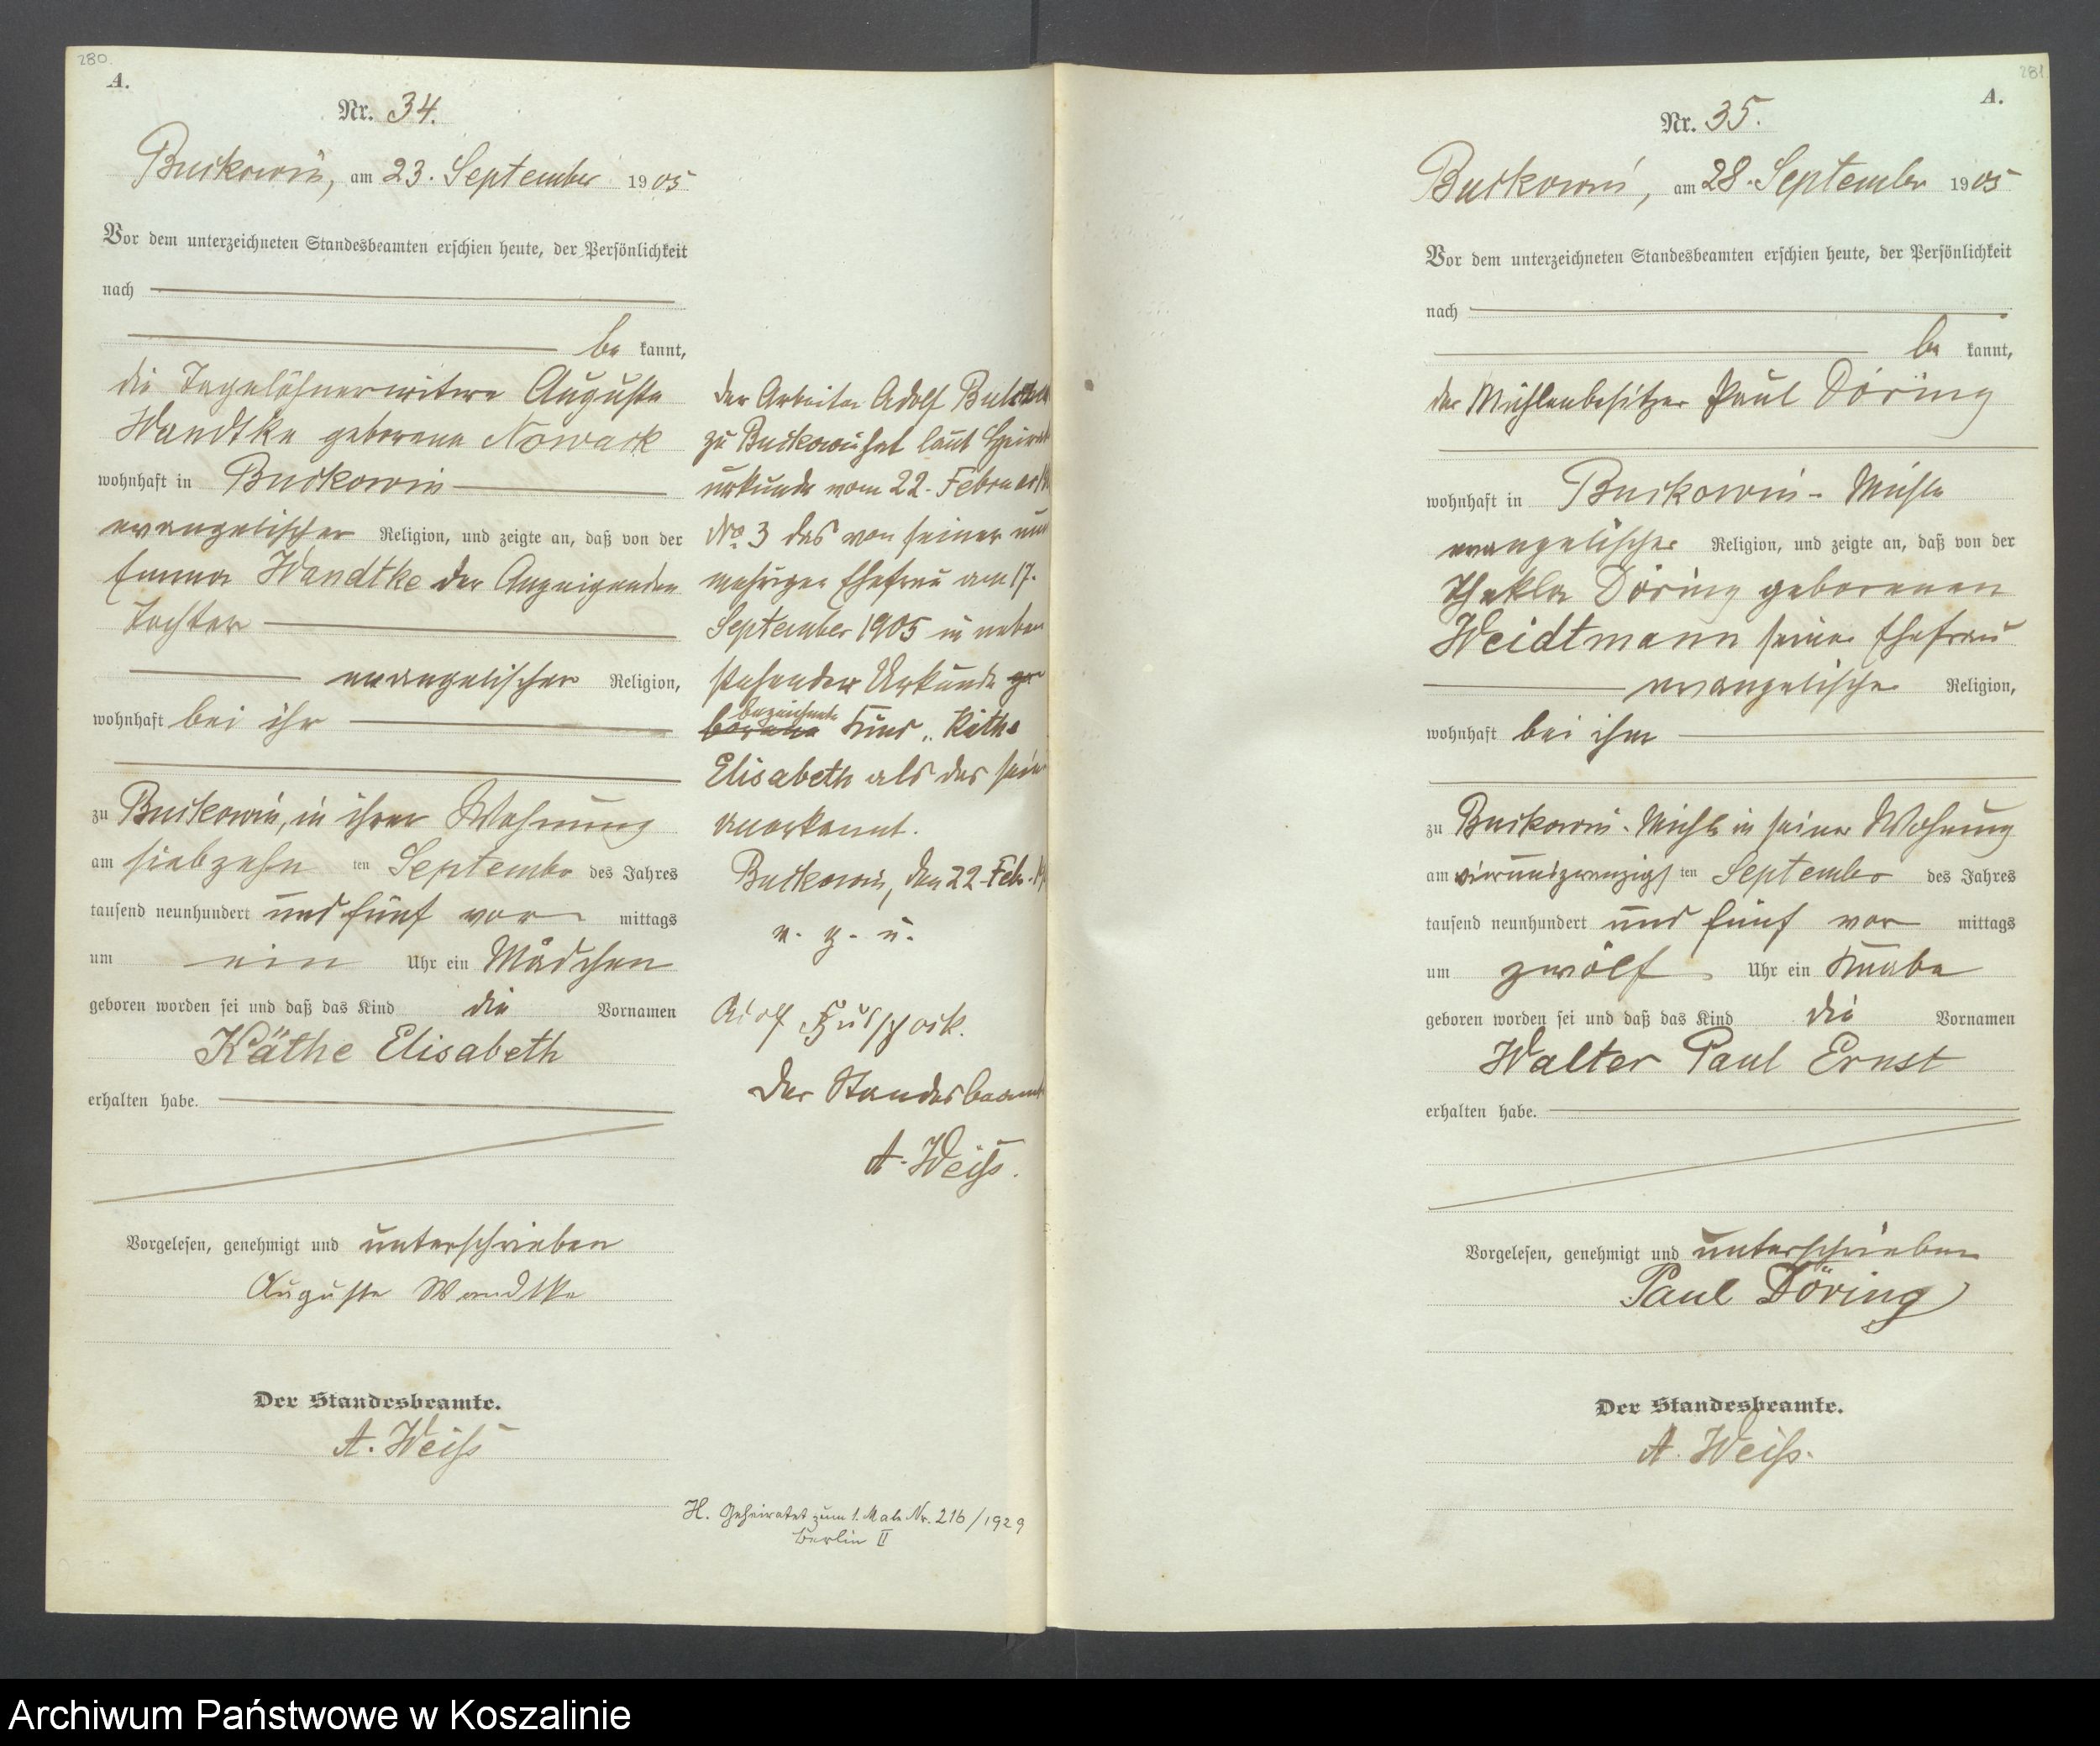 280.
A.
Nr. 34.
Buckowin, am 23. September 1905
Vor dem unterzeichneten Standesbeamten erschien heute, der Persönlichkeit
nach
be kannt,
die Tagelöhnerwitwe Auguste
Wandtke geborene Nowack
wohnhaft in Buckowin
evangelischer Religion, und zeigte an, daß von der
Emma Wandtke der Anzeigenden
Tochter
evangelischer Religion,
wohnhaft bei ihr
zu Buckowin, in ihrer Wohnung
am siebzehn ten September des Jahres
tausend neunhundert und fünf vor mittags
um ein Uhr ein Mädchen
geboren worden sei und daß das Kind die Vornamen
Käthe Elisabeth
erhalten habe.
Vorgelesen, genehmigt und unterschrieben
Auguste Wandtke
Der Standesbeamte.
A. Weiß
der Arbeiter Adolf
zu Buckowin hat laut
urkunde vom 22. Februar
No. 3 das von seiner
mehrigen Ehefrau am 17.
September 1905 in neben
stehender Urkunde ge
borene bezeichnete Kind, Käthe
Elisabeth als das
anerkannt.
Buckowin, den 22. Feb.
v. g. u.
Adolf
Der Standesbeamte
A. Weiß.
H. Geheiratet zum 1. Male Nr. 216/1929
Berlin II
281
A.
Nr. 35.
Buckowin, am 28. September 1905
Vor dem unterzeichneten Standesbeamten erschien heute, der Persönlichkeit
nach
be kannt,
der Mühlenbesitzer Paul Döring
wohnhaft in Buckowin-Mühle
evangelischer Religion, und zeigte an, daß von der
Thekla Döring geborenen
Weidtmann seiner Ehefrau
evangelischer Religion,
wohnhaft bei ihm
zu Buckowin-Mühle in seiner Wohnung
am vierundzwanzigs ten September des Jahres
tausend neunhundert und fünf vor mittags
um zwölf Uhr ein Knabe
geboren worden sei und daß das Kind die Vornamen
Walter Paul Ernst
erhalten habe.
Vorgelesen, genehmigt und unterschrieben
Paul Döring
Der Standesbeamte.
A. Weiß.
Archiwum Państwowe w Koszalinie